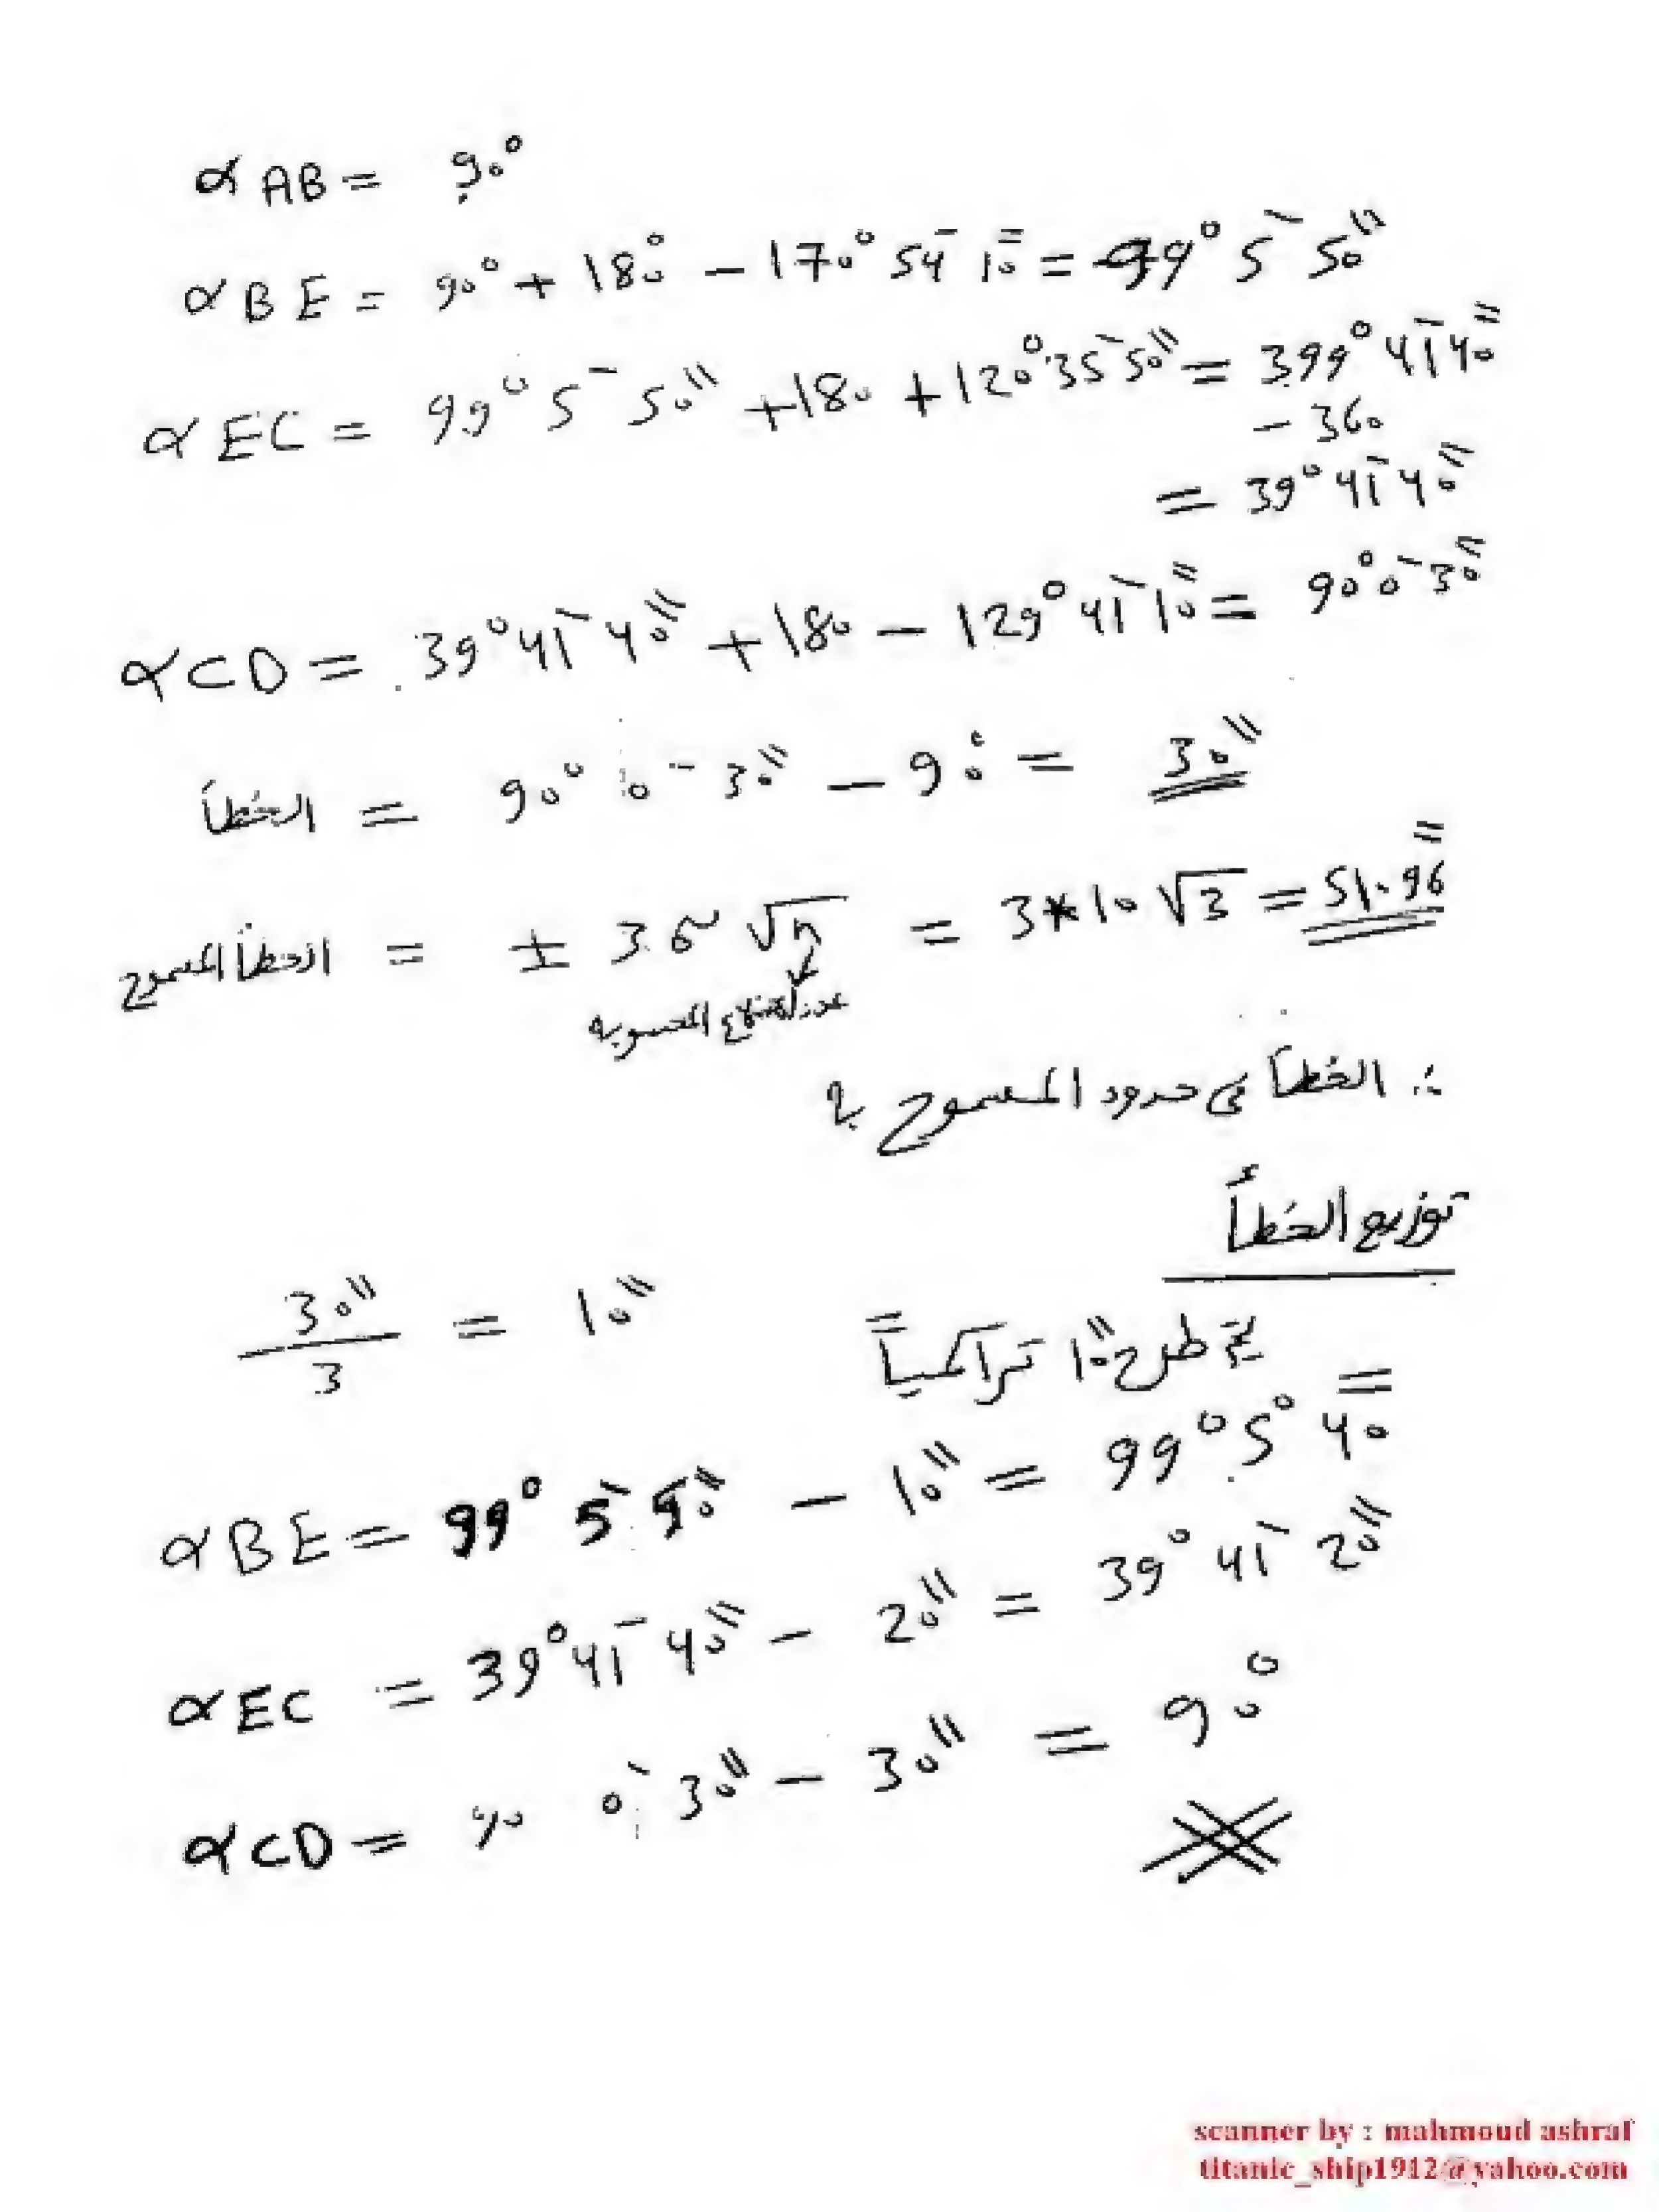 α AB = 90°
α BE = 90° + 180° - 170° 54' 10" = 99° 5' 50"
α EC = 99° 5' 50" + 180 + 120° 35' 50" = 399° 41' 40"
- 360
= 39° 41' 40"
α CD = 39° 41' 40" + 180 - 129° 41' 10" = 90° 0' 30"
الخطأ = 90° 0' 30" - 90° = 30"
الخطأ المسموح = ± 3 σ √n = 3*10 √3 = 51.96"
عدد الاضلاع المحسوبه
∴ الخطأ فى حدود المسموح به
توزيع الخطأ
30" / 3 = 10"
يتم طرح 10" تراكمياً
α BE = 99° 5' 50" - 10" = 99° 5° 40"
α EC = 39° 41' 40" - 20" = 39° 41' 20"
α CD = 90 0' 30" - 30" = 90°
scanner by : mahmoud ashraf
titanic_ship1912@yahoo.com